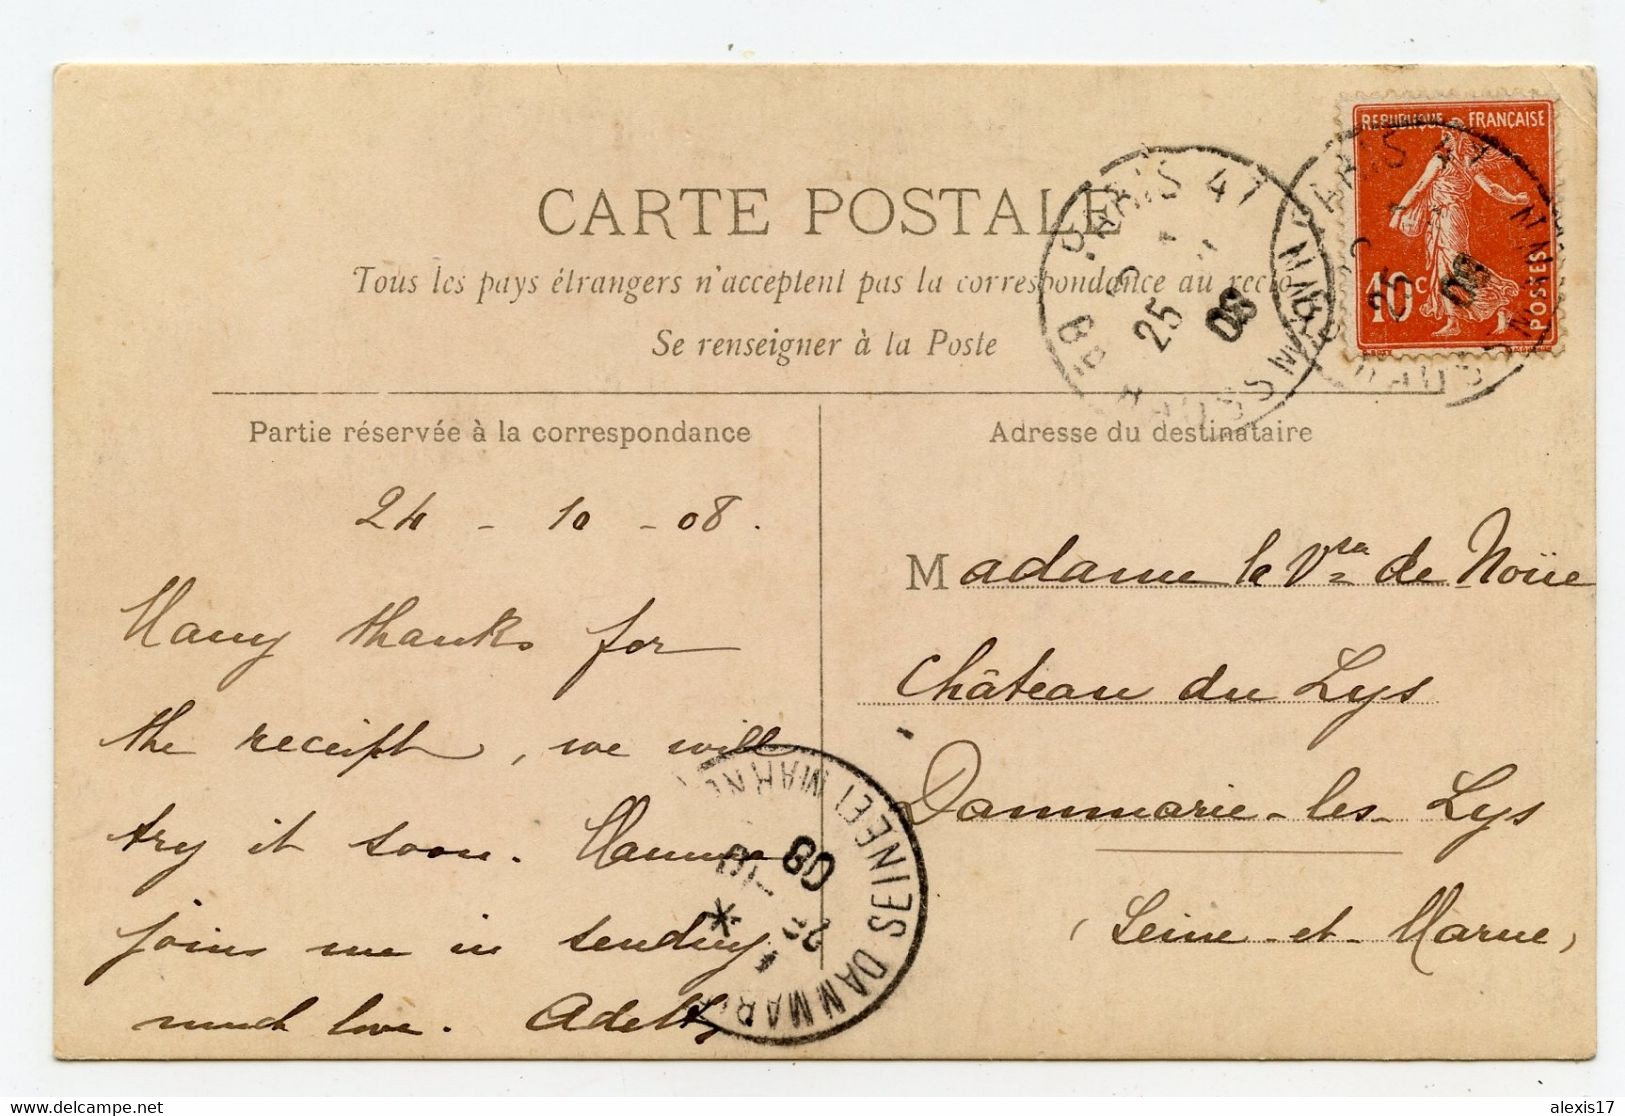 CARTE POSTALE
Tous les pays étrangers n'acceptent pas la correspondance au recto
Se renseigner à la Poste
REPUBLIQUE FRANÇAISE
10c
POSTES
PARIS 41
25
08
PARIS 41
25
08
Partie réservée à la correspondance
Adresse du destinataire
24 - 10 - 08.
Many thanks for
the receipt, we will
try it soon. Maman
joins me in sending
much love.
Madame la Vsse de Noüe
Château du Lys
Dammarie-les-Lys
(Seine-et-Marne)
SEINE ET MARNE
08
alexis17